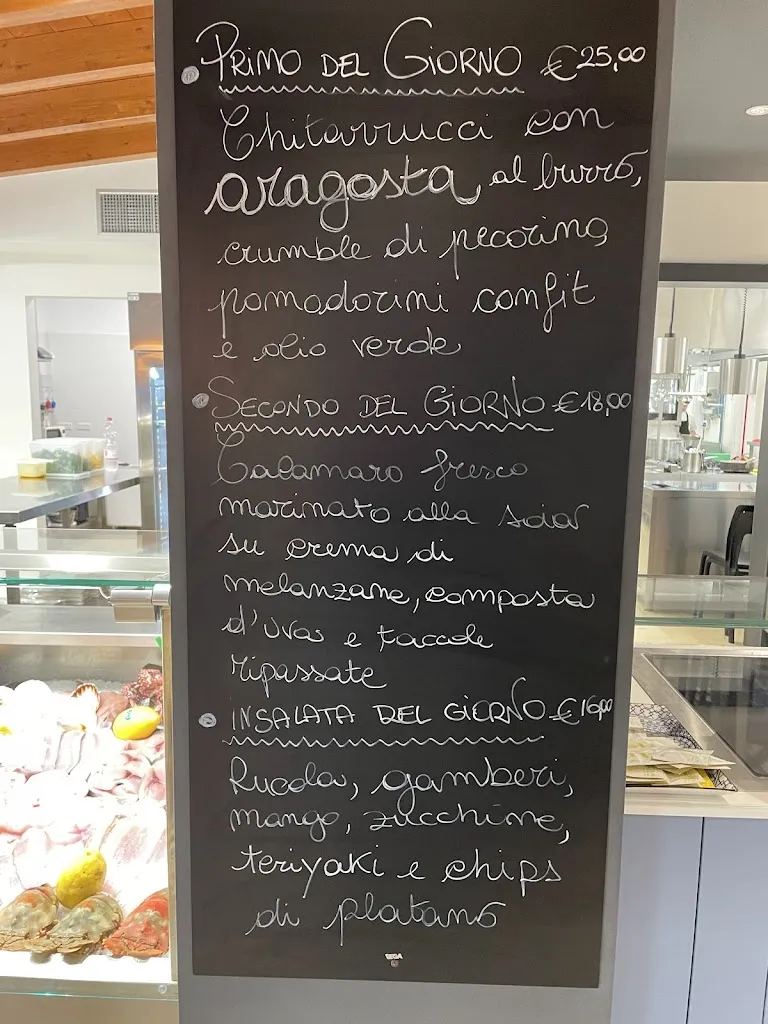 PRIMO DEL GIORNO €25,00
Chitarrucci con
aragosta al burro,
crumble di pecorino
pomodorini confit
e olio verde
SECONDO DEL GIORNO €18,00
Calamaro fresco
marinato alla soia
su crema di
melanzane, composta
d'uva e taccole
ripassate
INSALATA DEL GIORNO €16,00
Rucola, gamberi,
mango, zucchine,
teriyaki e chips
di platano